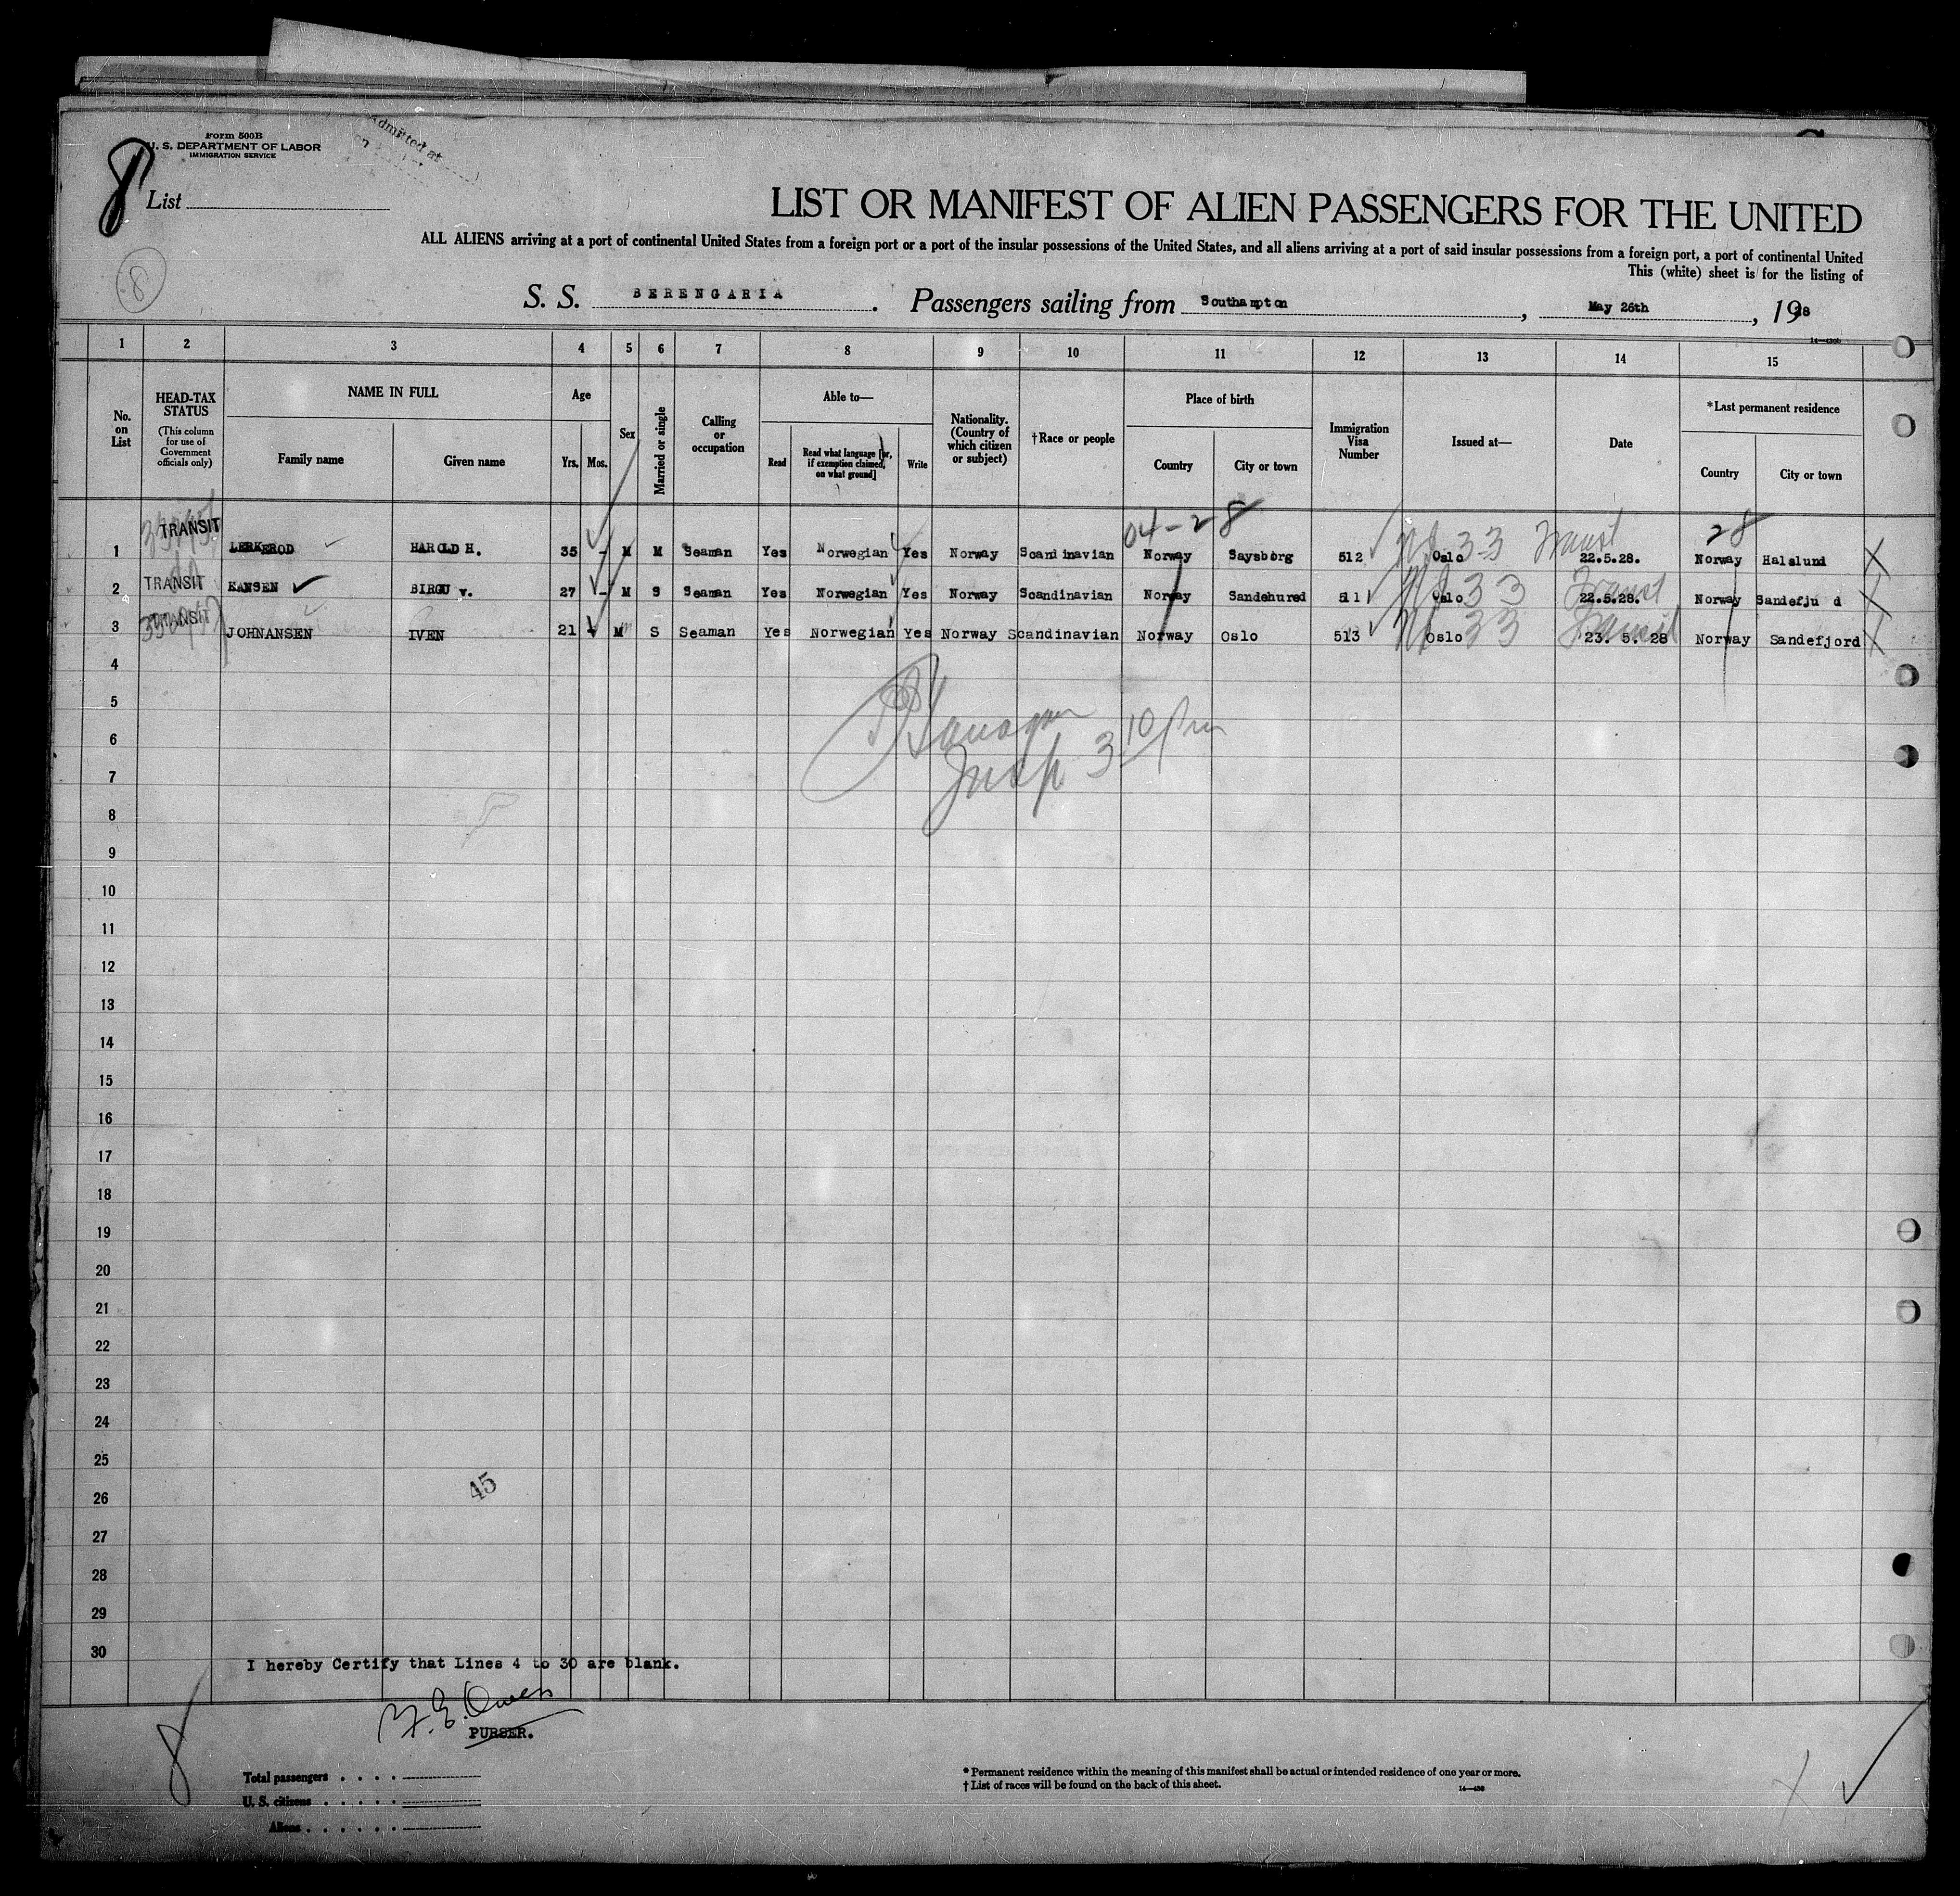 Form 500B
U. S. DEPARTMENT OF LABOR
IMMIGRATION SERVICE
Admitted at
8
List
8
LIST OR MANIFEST OF ALIEN PASSENGERS FOR THE UNITED
ALL ALIENS arriving at a port of continental United States from a foreign port or a port of the insular possessions of the United States, and all aliens arriving at a port of said insular possessions from a foreign port, a port of continental United
This (white) sheet is for the listing of
S. S. BERENGARIA. Passengers sailing from Southampton, May 26th, 1928
14—430b
1 2 3 4 5 6 7 8 9 10 11 12 13 14 15
No. on List
HEAD-TAX STATUS
(This column for use of Government officials only)
NAME IN FULL
Family name
Given name
Age
Yrs. Mos.
Sex
Married or single
Calling or occupation
Able to—
Read
Read what language [or, if exemption claimed, on what ground]
Write
Nationality. (Country of which citizen or subject)
†Race or people
Place of birth
Country
City or town
Immigration Visa Number
Issued at—
Date
*Last permanent residence
Country
City or town
04-28 28
1 TRANSIT LERKEROD HAROLD H. 35 - M M Seaman Yes Norwegian Yes Norway Scandinavian Norway Saysborg 512 Oslo 33 Transit 22.5.28. Norway Halslund X
2 TRANSIT KANSEN BIRGU v. 27 - M S Seaman Yes Norwegian Yes Norway Scandinavian Norway Sandehured 511 Oslo 33 Transit 22.5.28. Norway Sandefju d X
3 TRANSIT JOHNANSEN IVEN 21 M m S Seaman Yes Norwegian Yes Norway Scandinavian Norway Oslo 513 Oslo 33 Transit 23. 5. 28 Norway Sandefjord X
4
5
6
Insp 3 10 Pm
7
8
9
10
11
12
13
14
15
16
17
18
19
20
21
22
23
24
25
45
26
27
28
29
30
I hereby Certify that Lines 4 to 30 are blank.
F. E. Owen
PURSER.
8
Total passengers
U. S. citizens
Aliens
* Permanent residence within the meaning of this manifest shall be actual or intended residence of one year or more.
† List of races will be found on the back of this sheet.
14—430
X